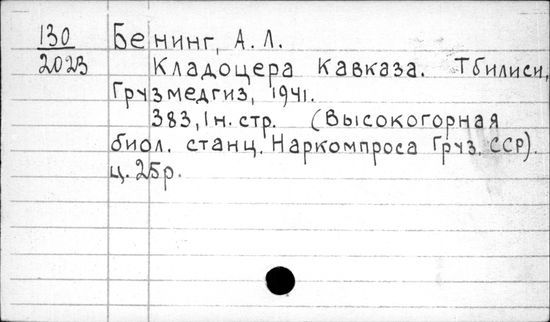 130 Бенинг, А. Л.
2023 Кладоцера Кавказа. Тбилиси,
Грузмедгиз, 1941.
383, 1 н. стр. (Высокогорная
биол. станц. Наркомпроса Груз. ССР).
ц. 25 р.